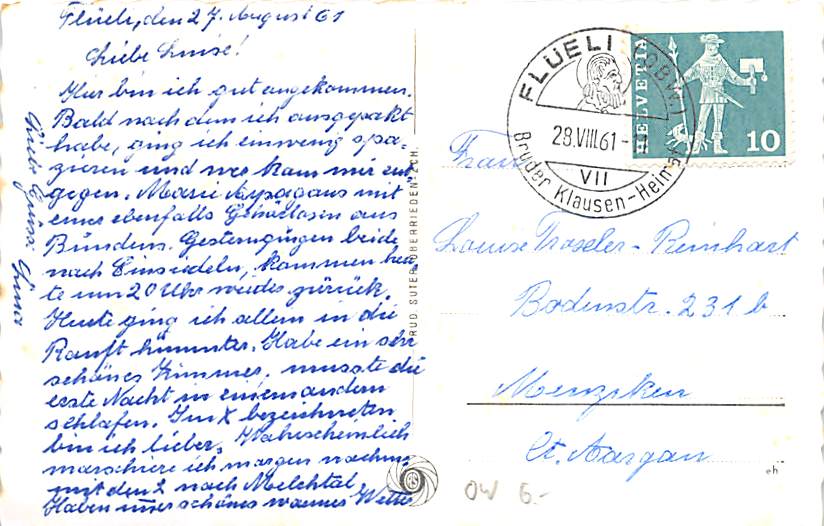 Flüeli, den 27. August 61
Liebe Luise!
Hier bin ich gut angekommen.
Bald nach dem ich ausgepakt
habe, ging ich ein wenig spa-
zieren und wer kam mir ent
gegen. Marie mit
einer ebenfalls Gehörlosin aus
Bünden. Gestern gingen beide
nach Einsiedeln, kommen heu
te um 20 Uhr wieder zürück.
Heute ging ich allein in die
Ranft hinunter. Habe ein sehr
schönes Zimmer, musste die
erste Nacht in einem andern
schlafen. Im X bezeichneten
bin ich lieber. Wahrscheinlich
marschiere ich morgen nachm.
mit den 2 nach Melchtal.
Haben immer schönes warmes Wetter
Liebe Grüsse
RUD. SUTER, OBERRIEDEN-ZCH.
FLÜELI (OBW.)
28.VIII.61
VII
Bruder Klausen-Heimat
HELVETIA
10
Frau
Louise Troxler-Reinhart
Bodenstr. 231 b
Menziken
Ct. Aargau
eh
OW 6.-